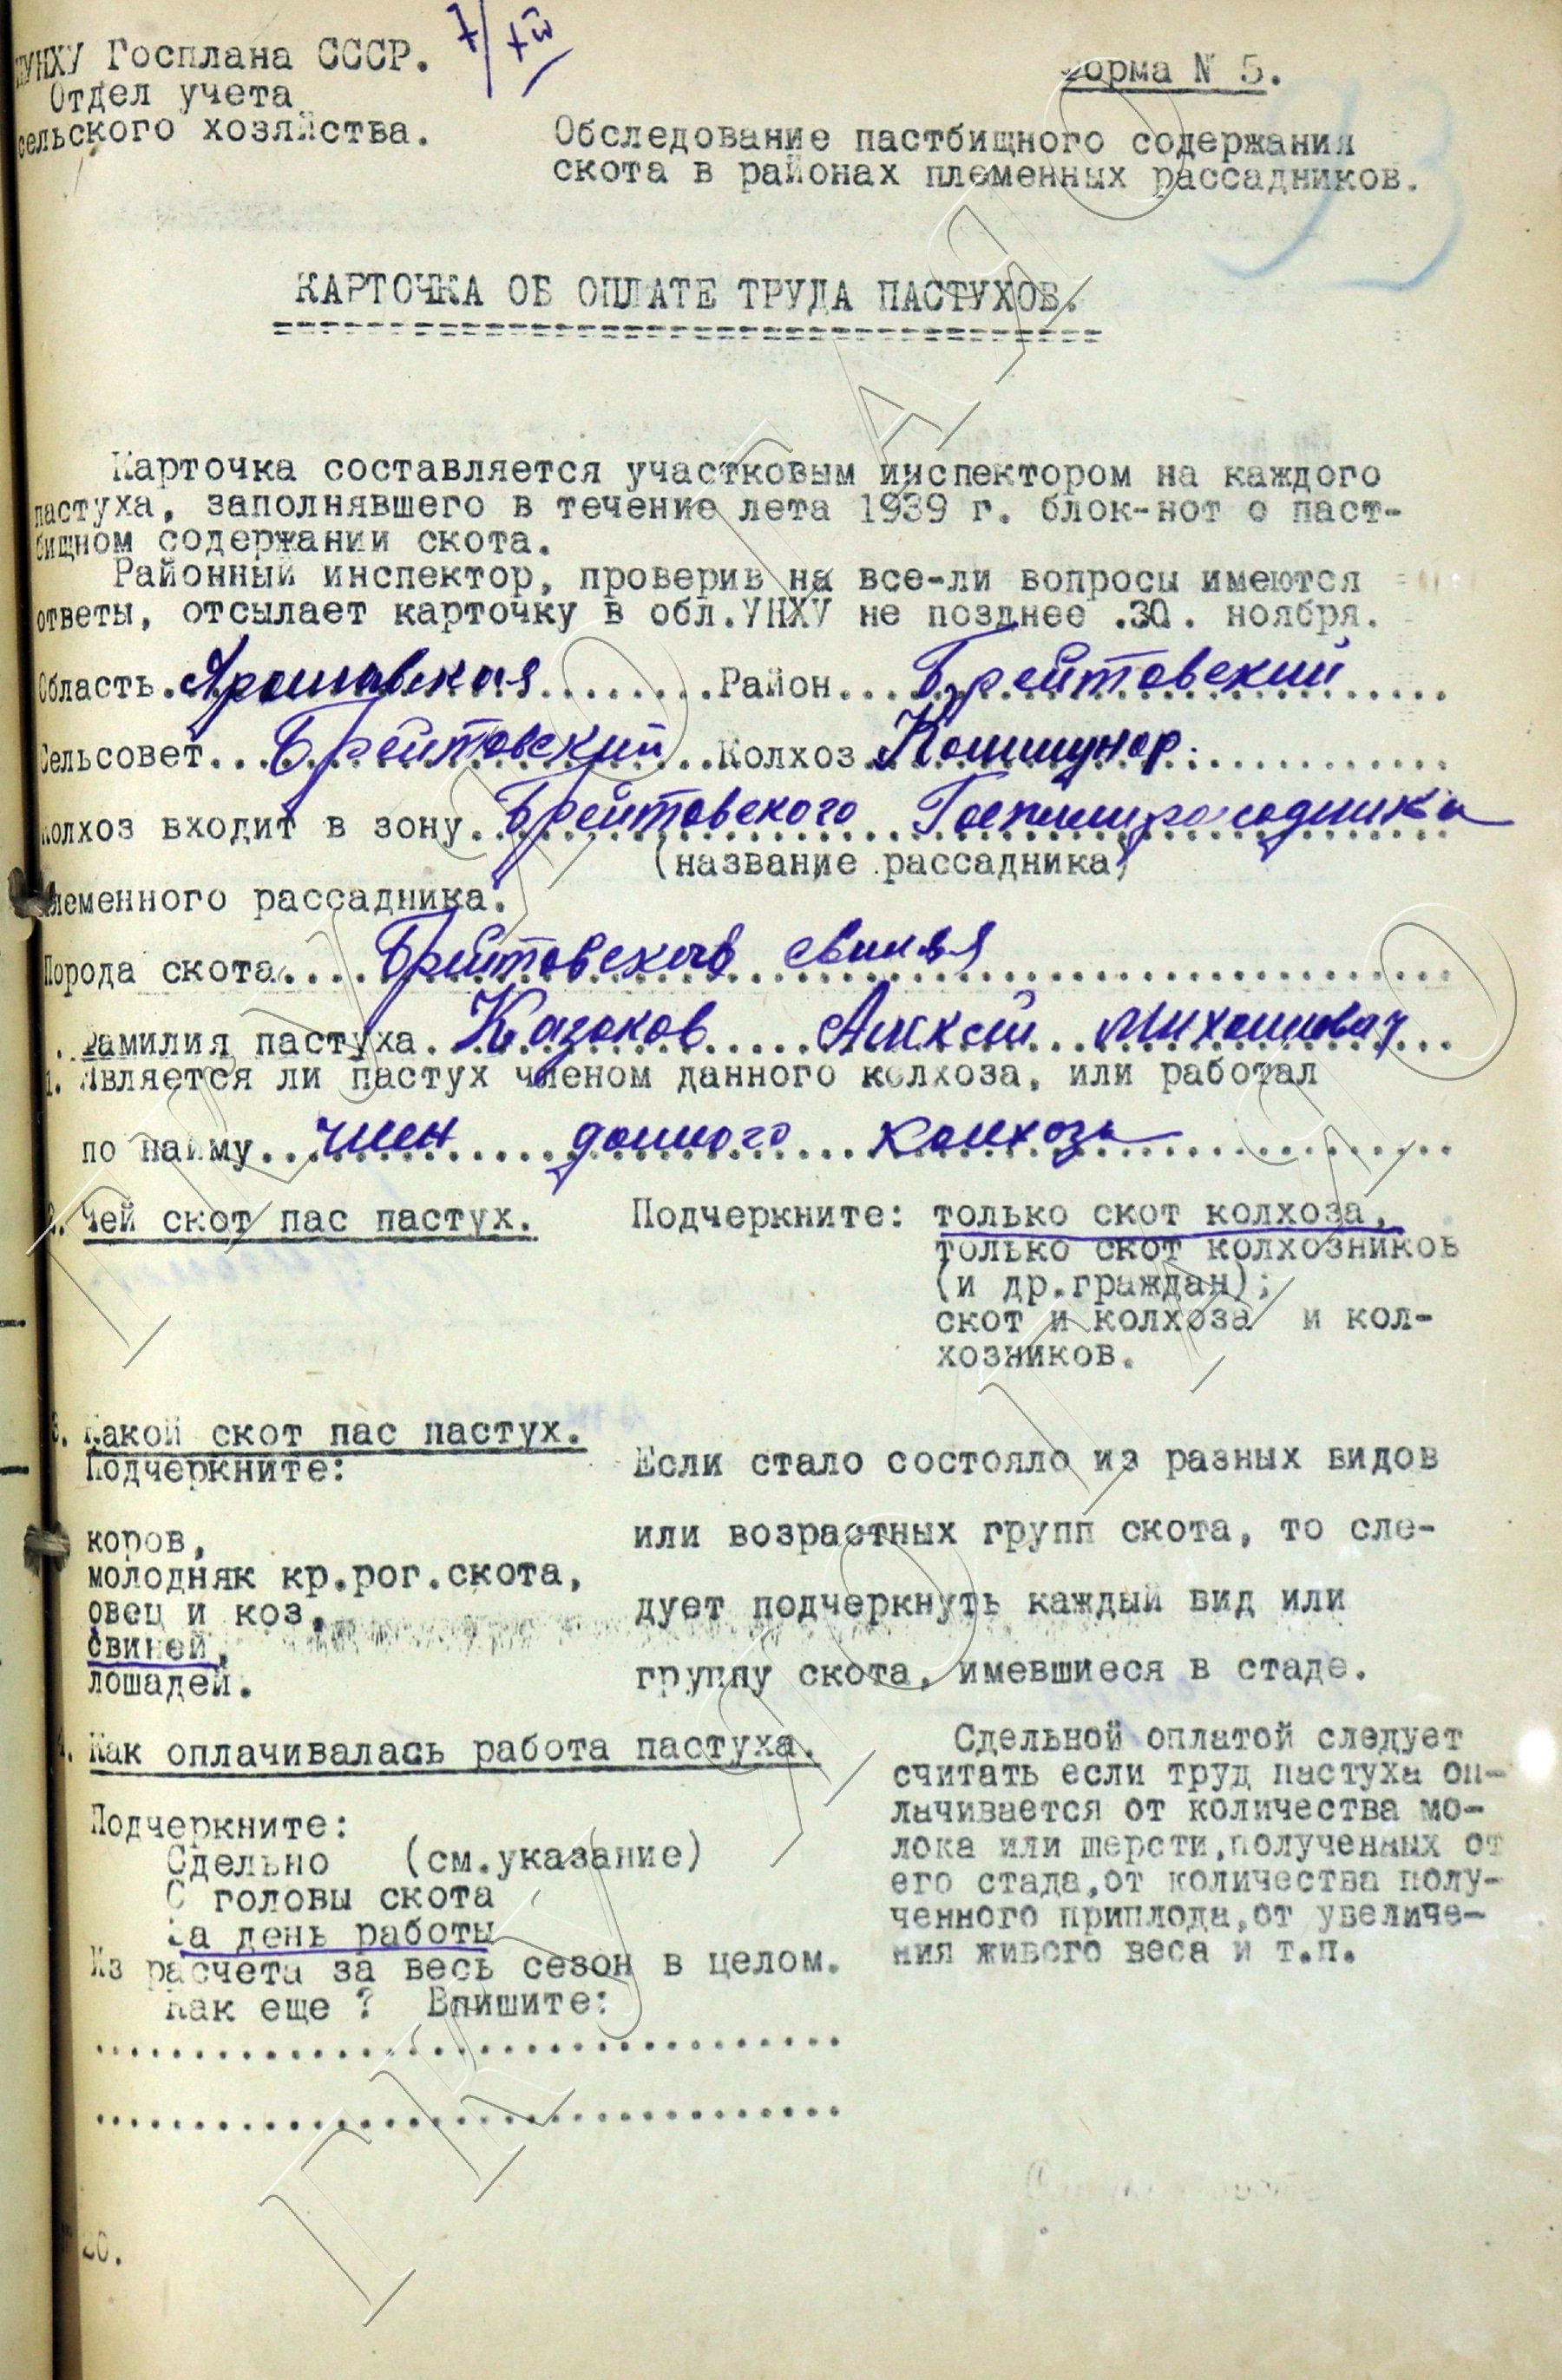 ЦУНХУ Госплана СССР. 7/XII
Отдел учета
сельского хозяйства.
Форма N 5.
93
Обследование пастбищного содержания
скота в районах племенных рассадников.
КАРТОЧКА ОБ ОПЛАТЕ ТРУДА ПАСТУХОВ.
Карточка составляется участковым инспектором на каждого
пастуха, заполнявшего в течение лета 1939 г. блок-нот о паст-
бищном содержании скота.
Районный инспектор, проверив на все-ли вопросы имеются
ответы, отсылает карточку в обл.УНХУ не позднее .30. ноября.
Область Ярославская Район Брейтовский
Сельсовет Брейтовский Колхоз Коммунар.
Колхоз входит в зону Брейтовского Госплемрассадника
(название рассадника)
племенного рассадника.
Порода скота Брейтовская свинья
Фамилия пастуха Казаков Алексей Михайлович
1. Является ли пастух членом данного колхоза, или работал
по найму член данного колхоза
2. Чей скот пас пастух. Подчеркните: только скот колхоза,
только скот колхозников
(и др.граждан);
скот и колхоза и кол-
хозников.
3. Какой скот пас пастух.
Подчеркните:
Если стало состояло из разных видов
или возрастных групп скота, то сле-
дует подчеркнуть каждый вид или
группу скота, имевшиеся в стаде.
коров,
молодняк кр.рог.скота,
овец и коз,
свиней,
лошадей.
4. Как оплачивалась работа пастуха.
Подчеркните:
Сдельно (см.указание)
С головы скота
За день работы
Из расчета за весь сезон в целом.
Как еще ? Впишите:
Сдельной оплатой следует
считать если труд пастуха оп-
лачивается от количества мо-
лока или шерсти,полученных от
его стада,от количества полу-
ченного приплода,от увеличе-
ния живого веса и т.п.
20.